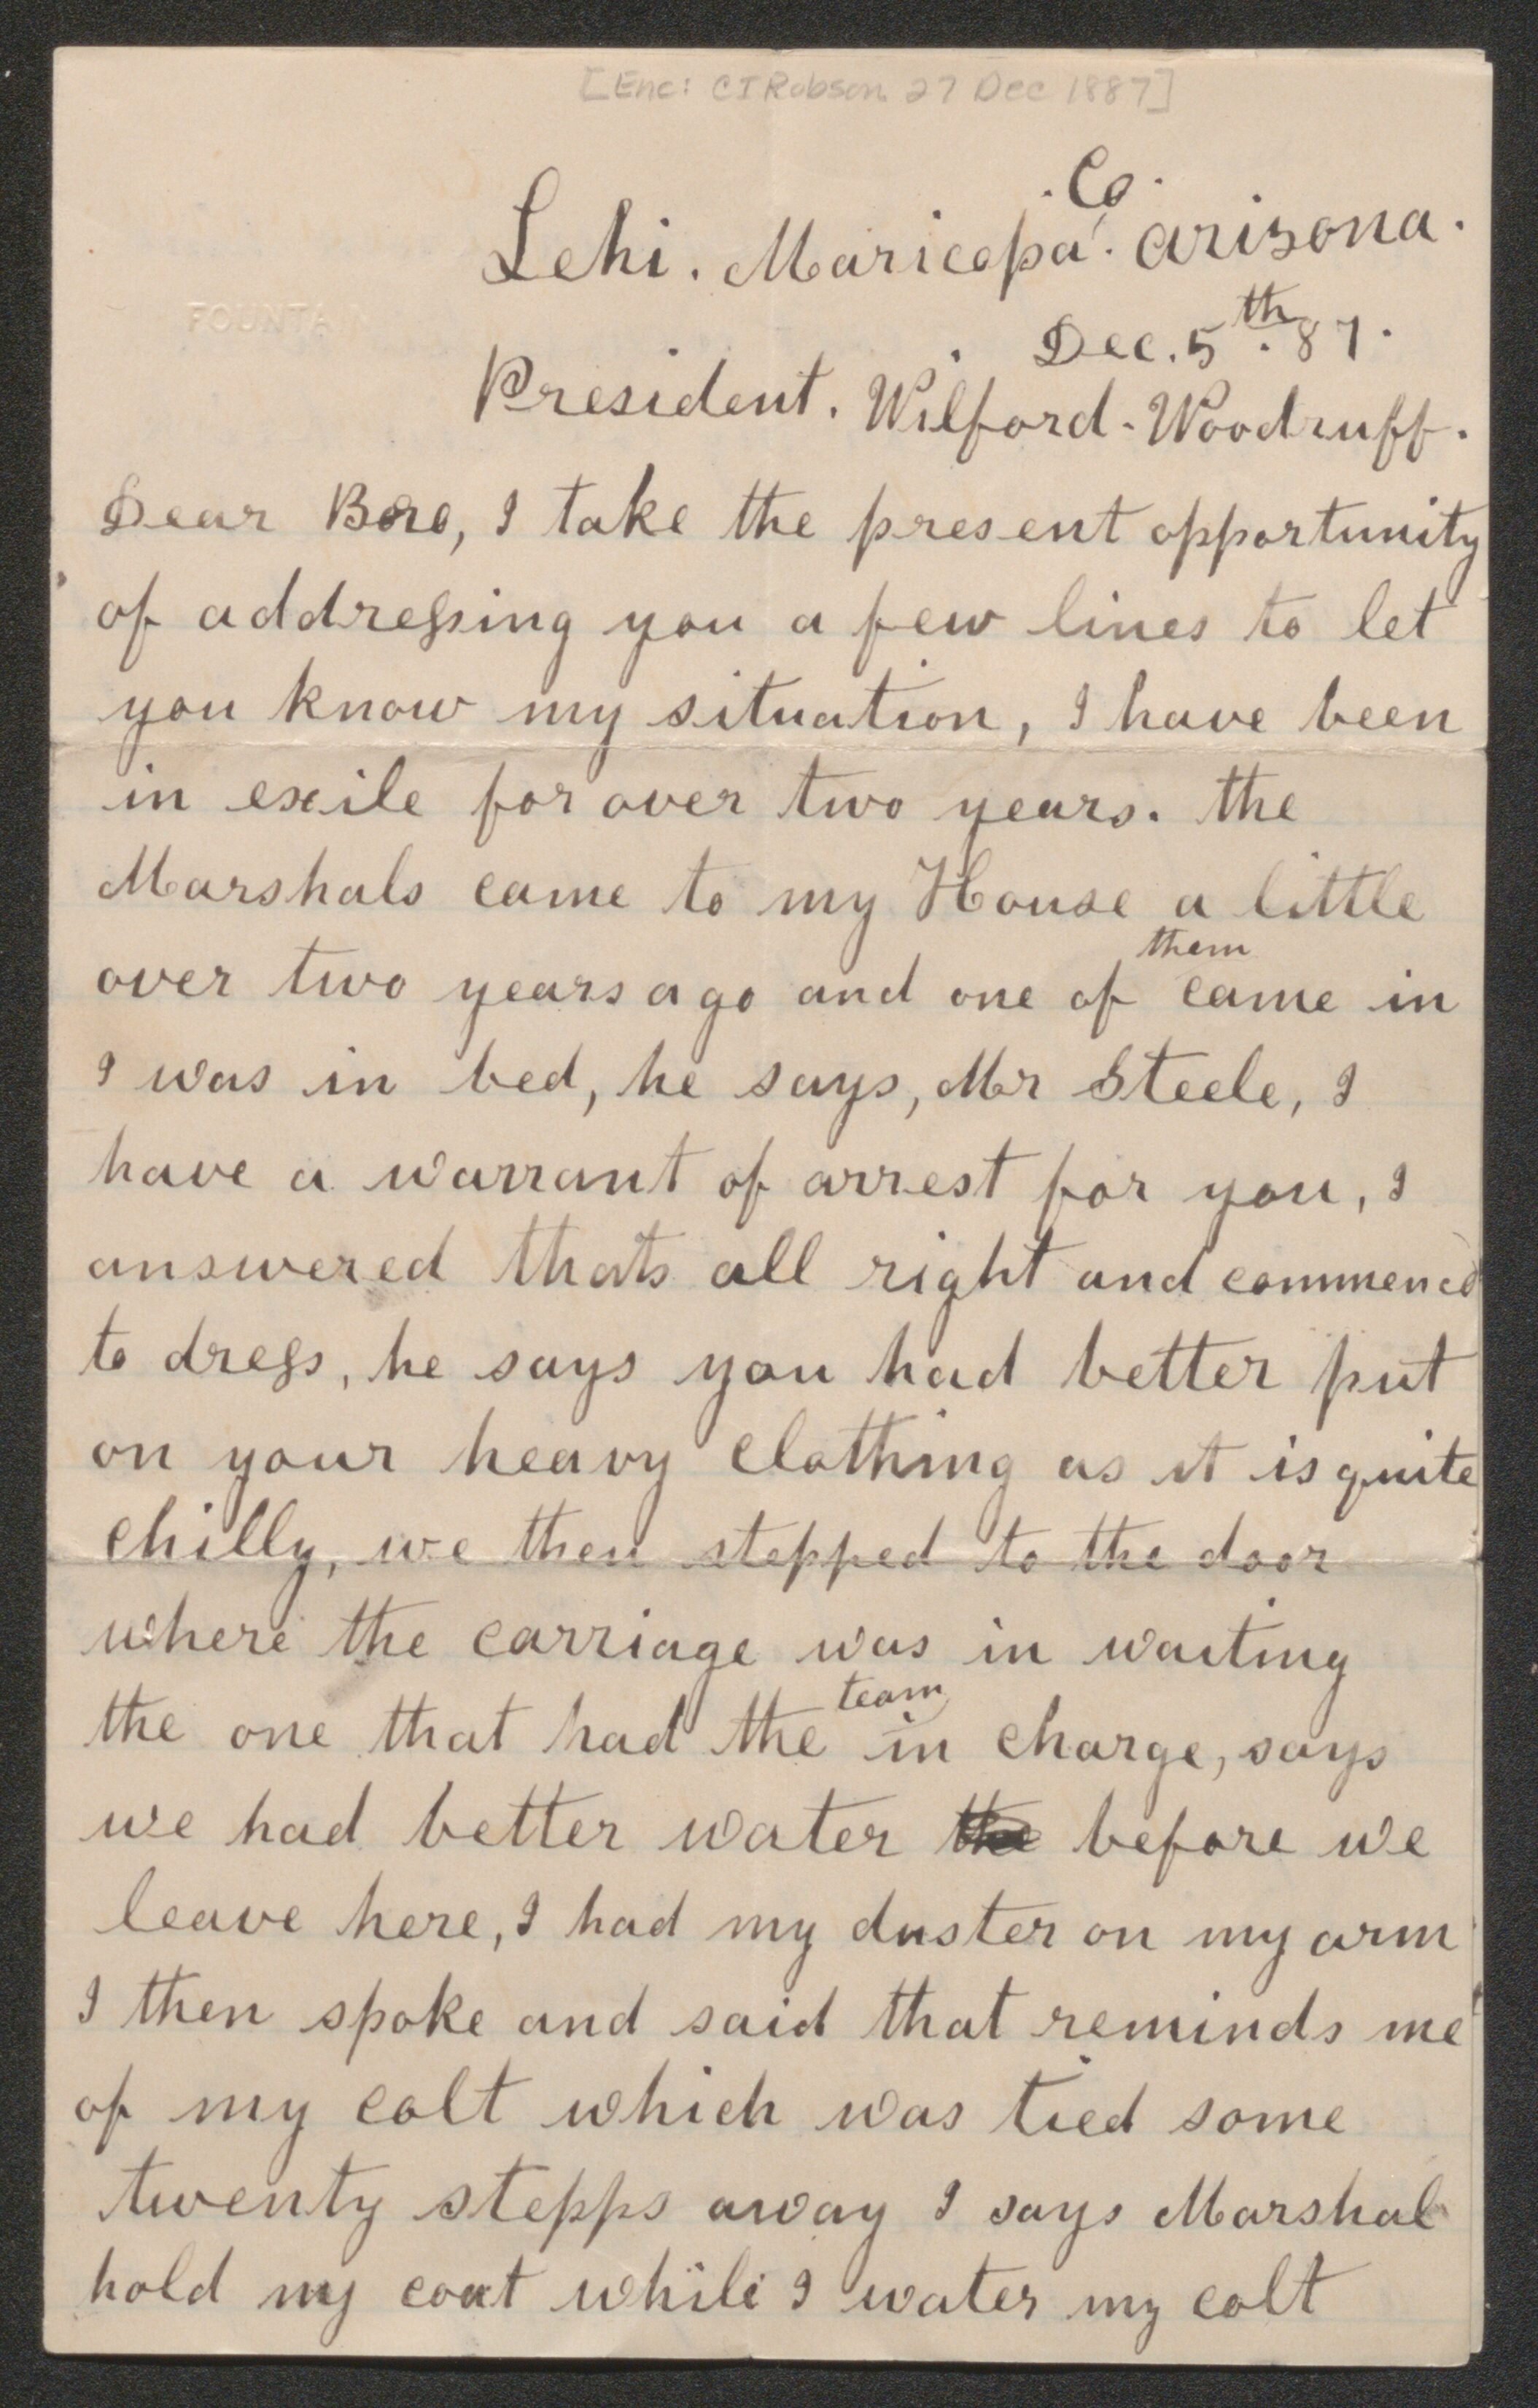 [Enc: CI Robson 27 Dec 1887]
Lehi. Maricopa. Co. Arizona.
Dec. 5th. 87.
FOUNTAIN
President. Wilford. Woodruff.
Dear Bro, I take the present opportunity
of addressing you a few lines to let
you know my situation, I have been
in exile for over two years. the
Marshals came to my House a little
over two years ago and one of them came in
I was in bed, he says, Mr Steele, I
have a warrant of arrest for you, I
answered thats all right and commencd
to dress, he says you had better put
on your heavy clothing as it is quite
chilly, we then stepped to the door
where the carriage was in waiting
the one that had the team in charge, says
we had better water the before we
leave here, I had my duster on my arm
I then spoke and said that reminds me
of my colt which was tied some
twenty stepps away I says Marshal
hold my coat while I water my colt